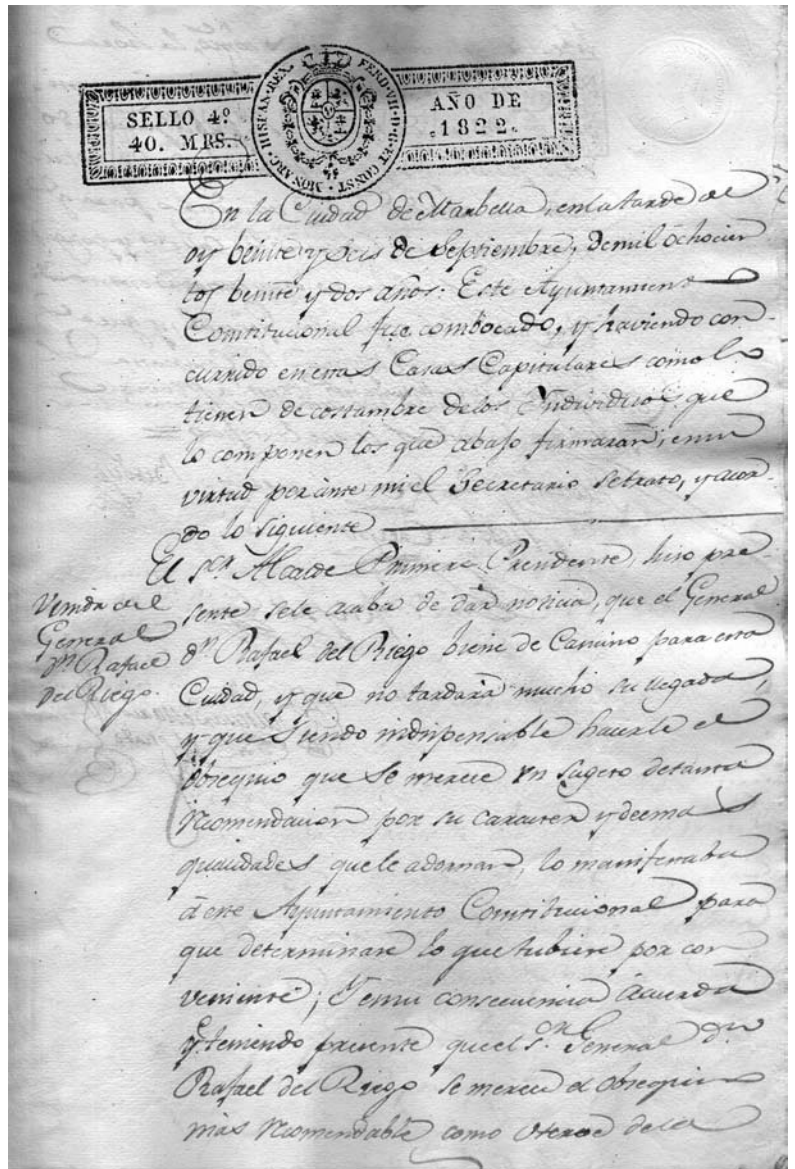 SELLO 4º
40. MRS.
HISPAN. REX. FERD. VII. D. G. ET CONST. MON ARC.
AÑO DE
1822.
En la Ciudad de Marbella, en la tarde de
oy beinte y seis de Septiembre, de mil ochocien
tos beinte y dos años. Este Ayuntamiento
Constitucional fue combocado, y haviendo con-
currido en estas Casas Capitulares como lo
tienen de costumbre de los Individuos que
lo componen los que abajo firmaran, en su
virtud por ante mi el Secretario se trato, y acor-
do lo siguiente
El Sr. Alcalde Primero Presidente, hiso pre
sente se le acaba de dar noticia, que el General
Dn Rafael del Riego biene de Camino para esta
Ciudad, y que no tardará mucho su llegada,
y que siendo indispensable hacerle el
obsequio que se merece un sugeto de tanta
recomendacion por su caracter y demas
qualidades que le adornan, lo manifestaba
á este Ayuntamiento Constitucional para
que determinase lo que tubiere por con
veniente; Y en su consecuencia Acuerda
y teniendo presente que el Sor. General Dn
Rafael del Riego se merece el obsequio
mas recomendable como Heroe de la
Venida del
General
Dn Rafael
del Riego.